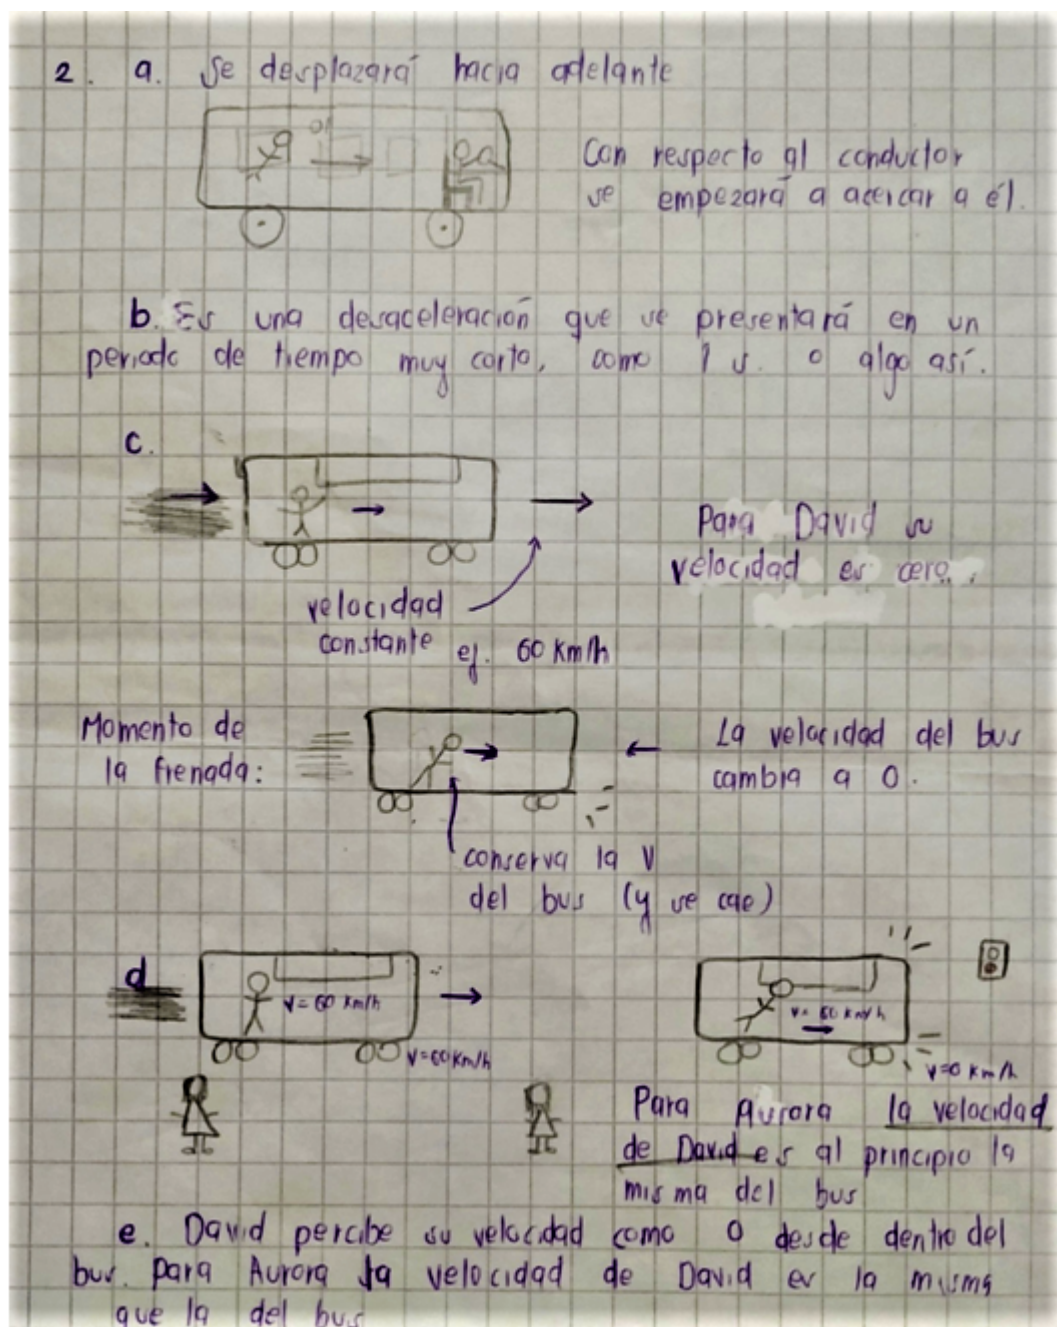 2. a. Se desplazará hacia adelante
Con respecto al conductor
se empezará a acercar a él.
b. Es una desaceleración que se presentará en un
periodo de tiempo muy corto, como 1 s. o algo así.
c.
Para David su
velocidad es cero.
velocidad
constante ej. 60 Km/h
Momento de
la frenada:
La velocidad del bus
cambia a 0.
conserva la V
del bus (y se cae)
d
V= 60 Km/h
V=60 Km/h
V= 60 Km/h
V=0 Km/h
Para Aurora la velocidad
de David es al principio la
misma del bus
e. David percibe su velocidad como 0 desde dentro del
bus. Para Aurora la velocidad de David es la misma
que la del bus